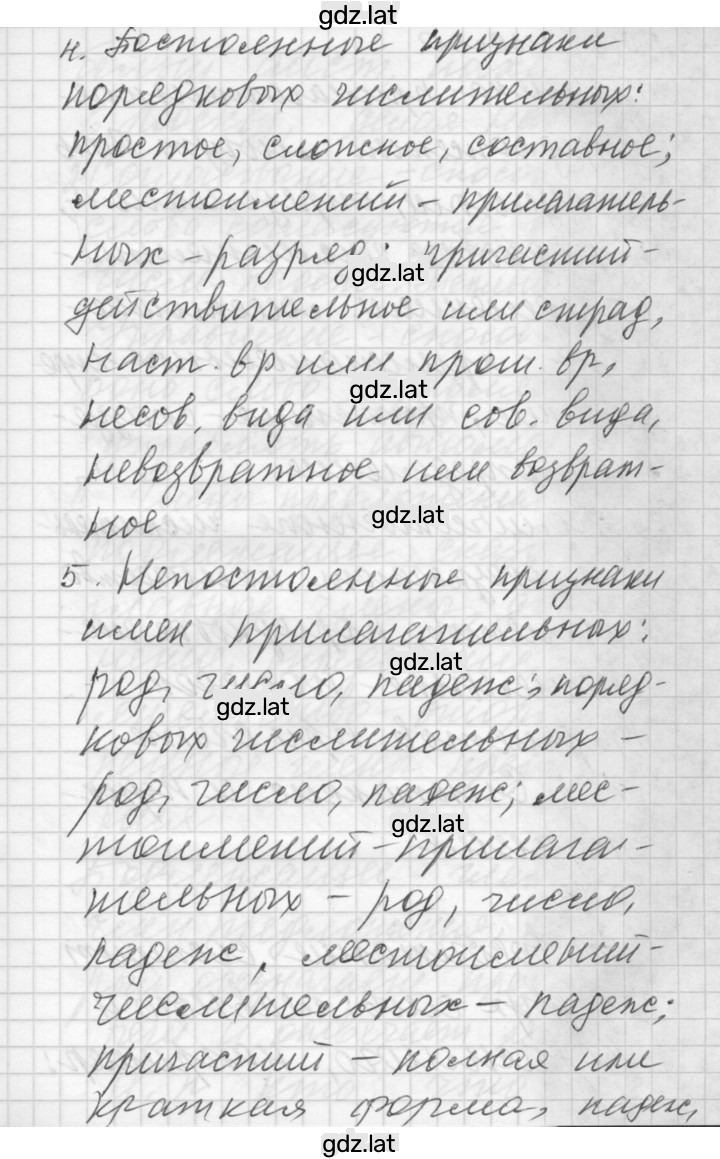 gdz.lat
4. Постоянные признаки
порядковых числительных:
простое, сложное, составное;
местоимений - прилагатель-
ных - разряд; причастий -
gdz.lat
действительное или страд,
наст. вр или прош. вр,
gdz.lat
несов. вида или сов. вида,
невозвратное или возврат-
ное
gdz.lat
5. Непостоянные признаки
имен прилагательных:
gdz.lat
род, число, падеж; поряд-
gdz.lat
ковых числительных -
род, число, падеж; мес-
gdz.lat
тоимений - прилага-
тельных - род, число,
падеж, местоимений -
числительных - падеж;
причастий - полная или
краткая форма, падеж,
gdz.lat